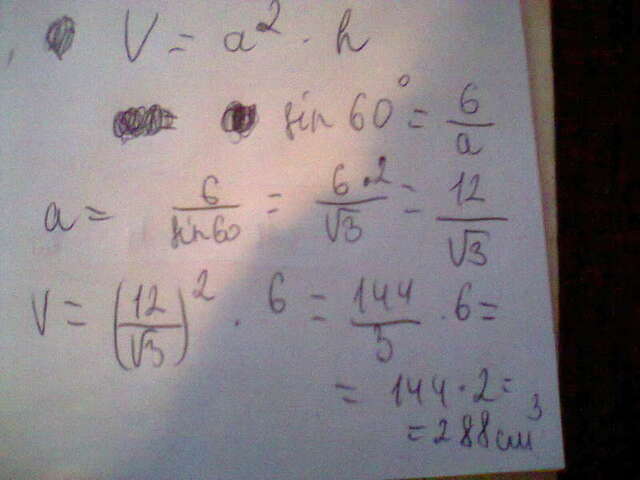 V = a² · h
sin 60° = 6/a
a = 6/sin60 = 6·2/√3 = 12/√3
V = (12/√3)² · 6 = 144/3 · 6 =
= 144 · 2 =
= 288 см³